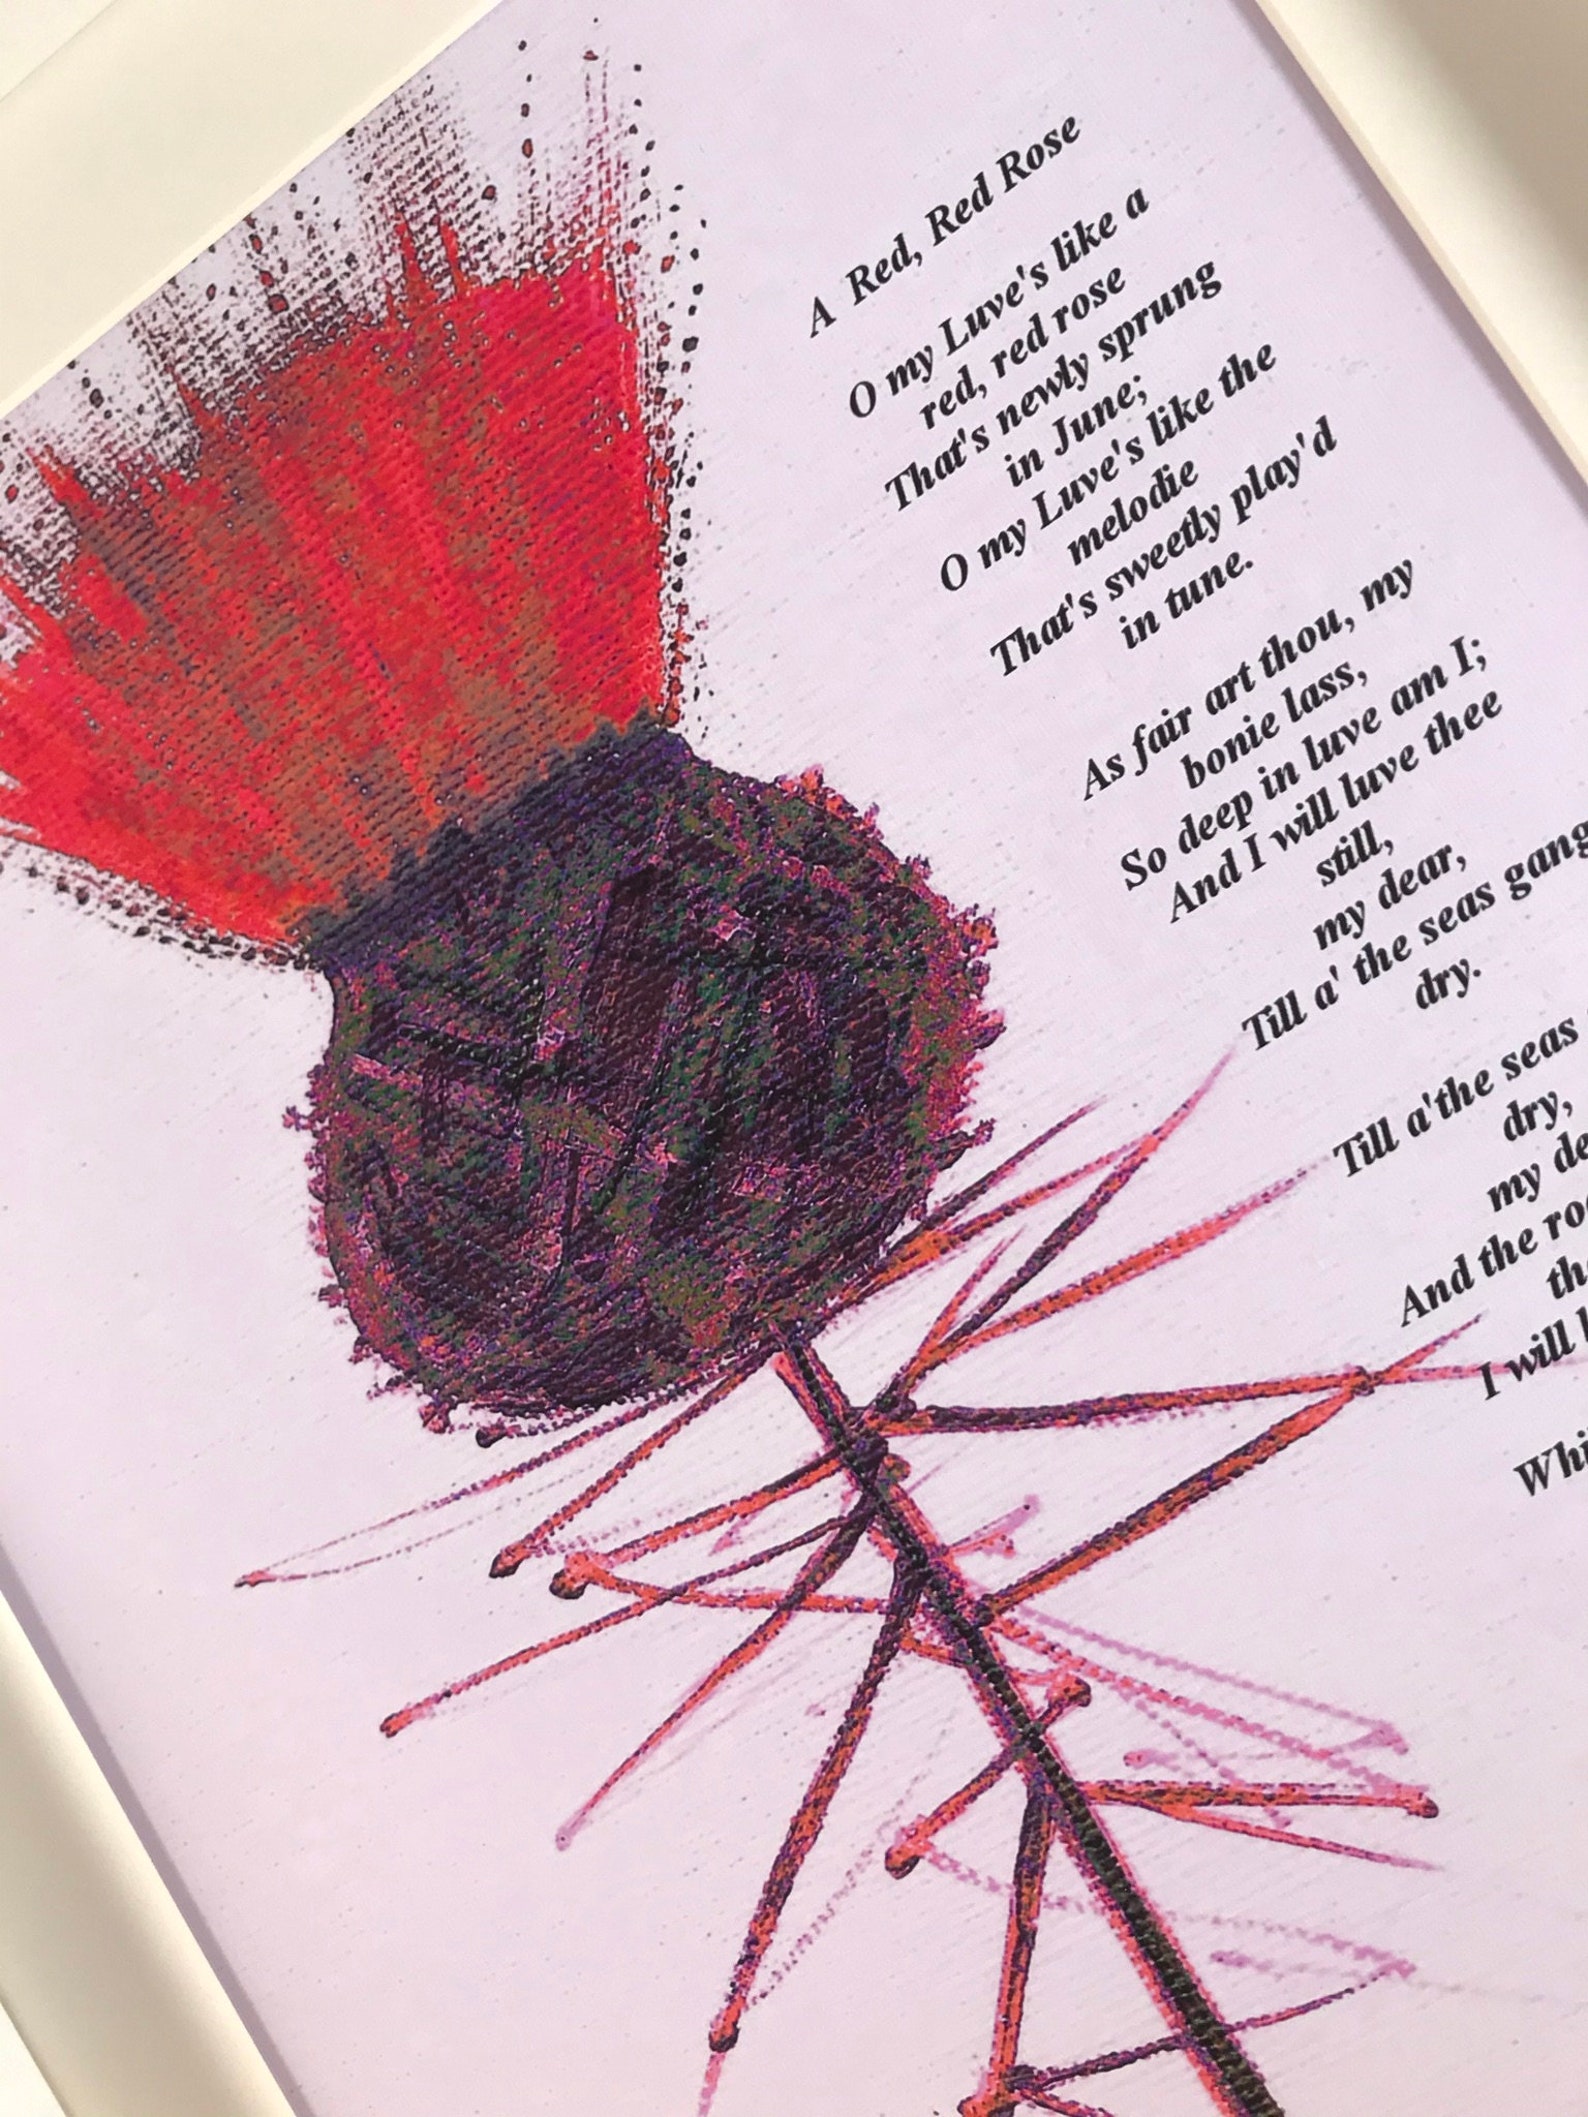 A Red, Red Rose
O my Luve's like a
red, red rose
That's newly sprung
in June;
O my Luve's like the
melodie
That's sweetly play'd
in tune.
As fair art thou, my
bonie lass,
So deep in luve am I;
And I will luve thee
still,
my dear,
Till a' the seas gang
dry.
Till a'the seas
dry,
my
And the
I will